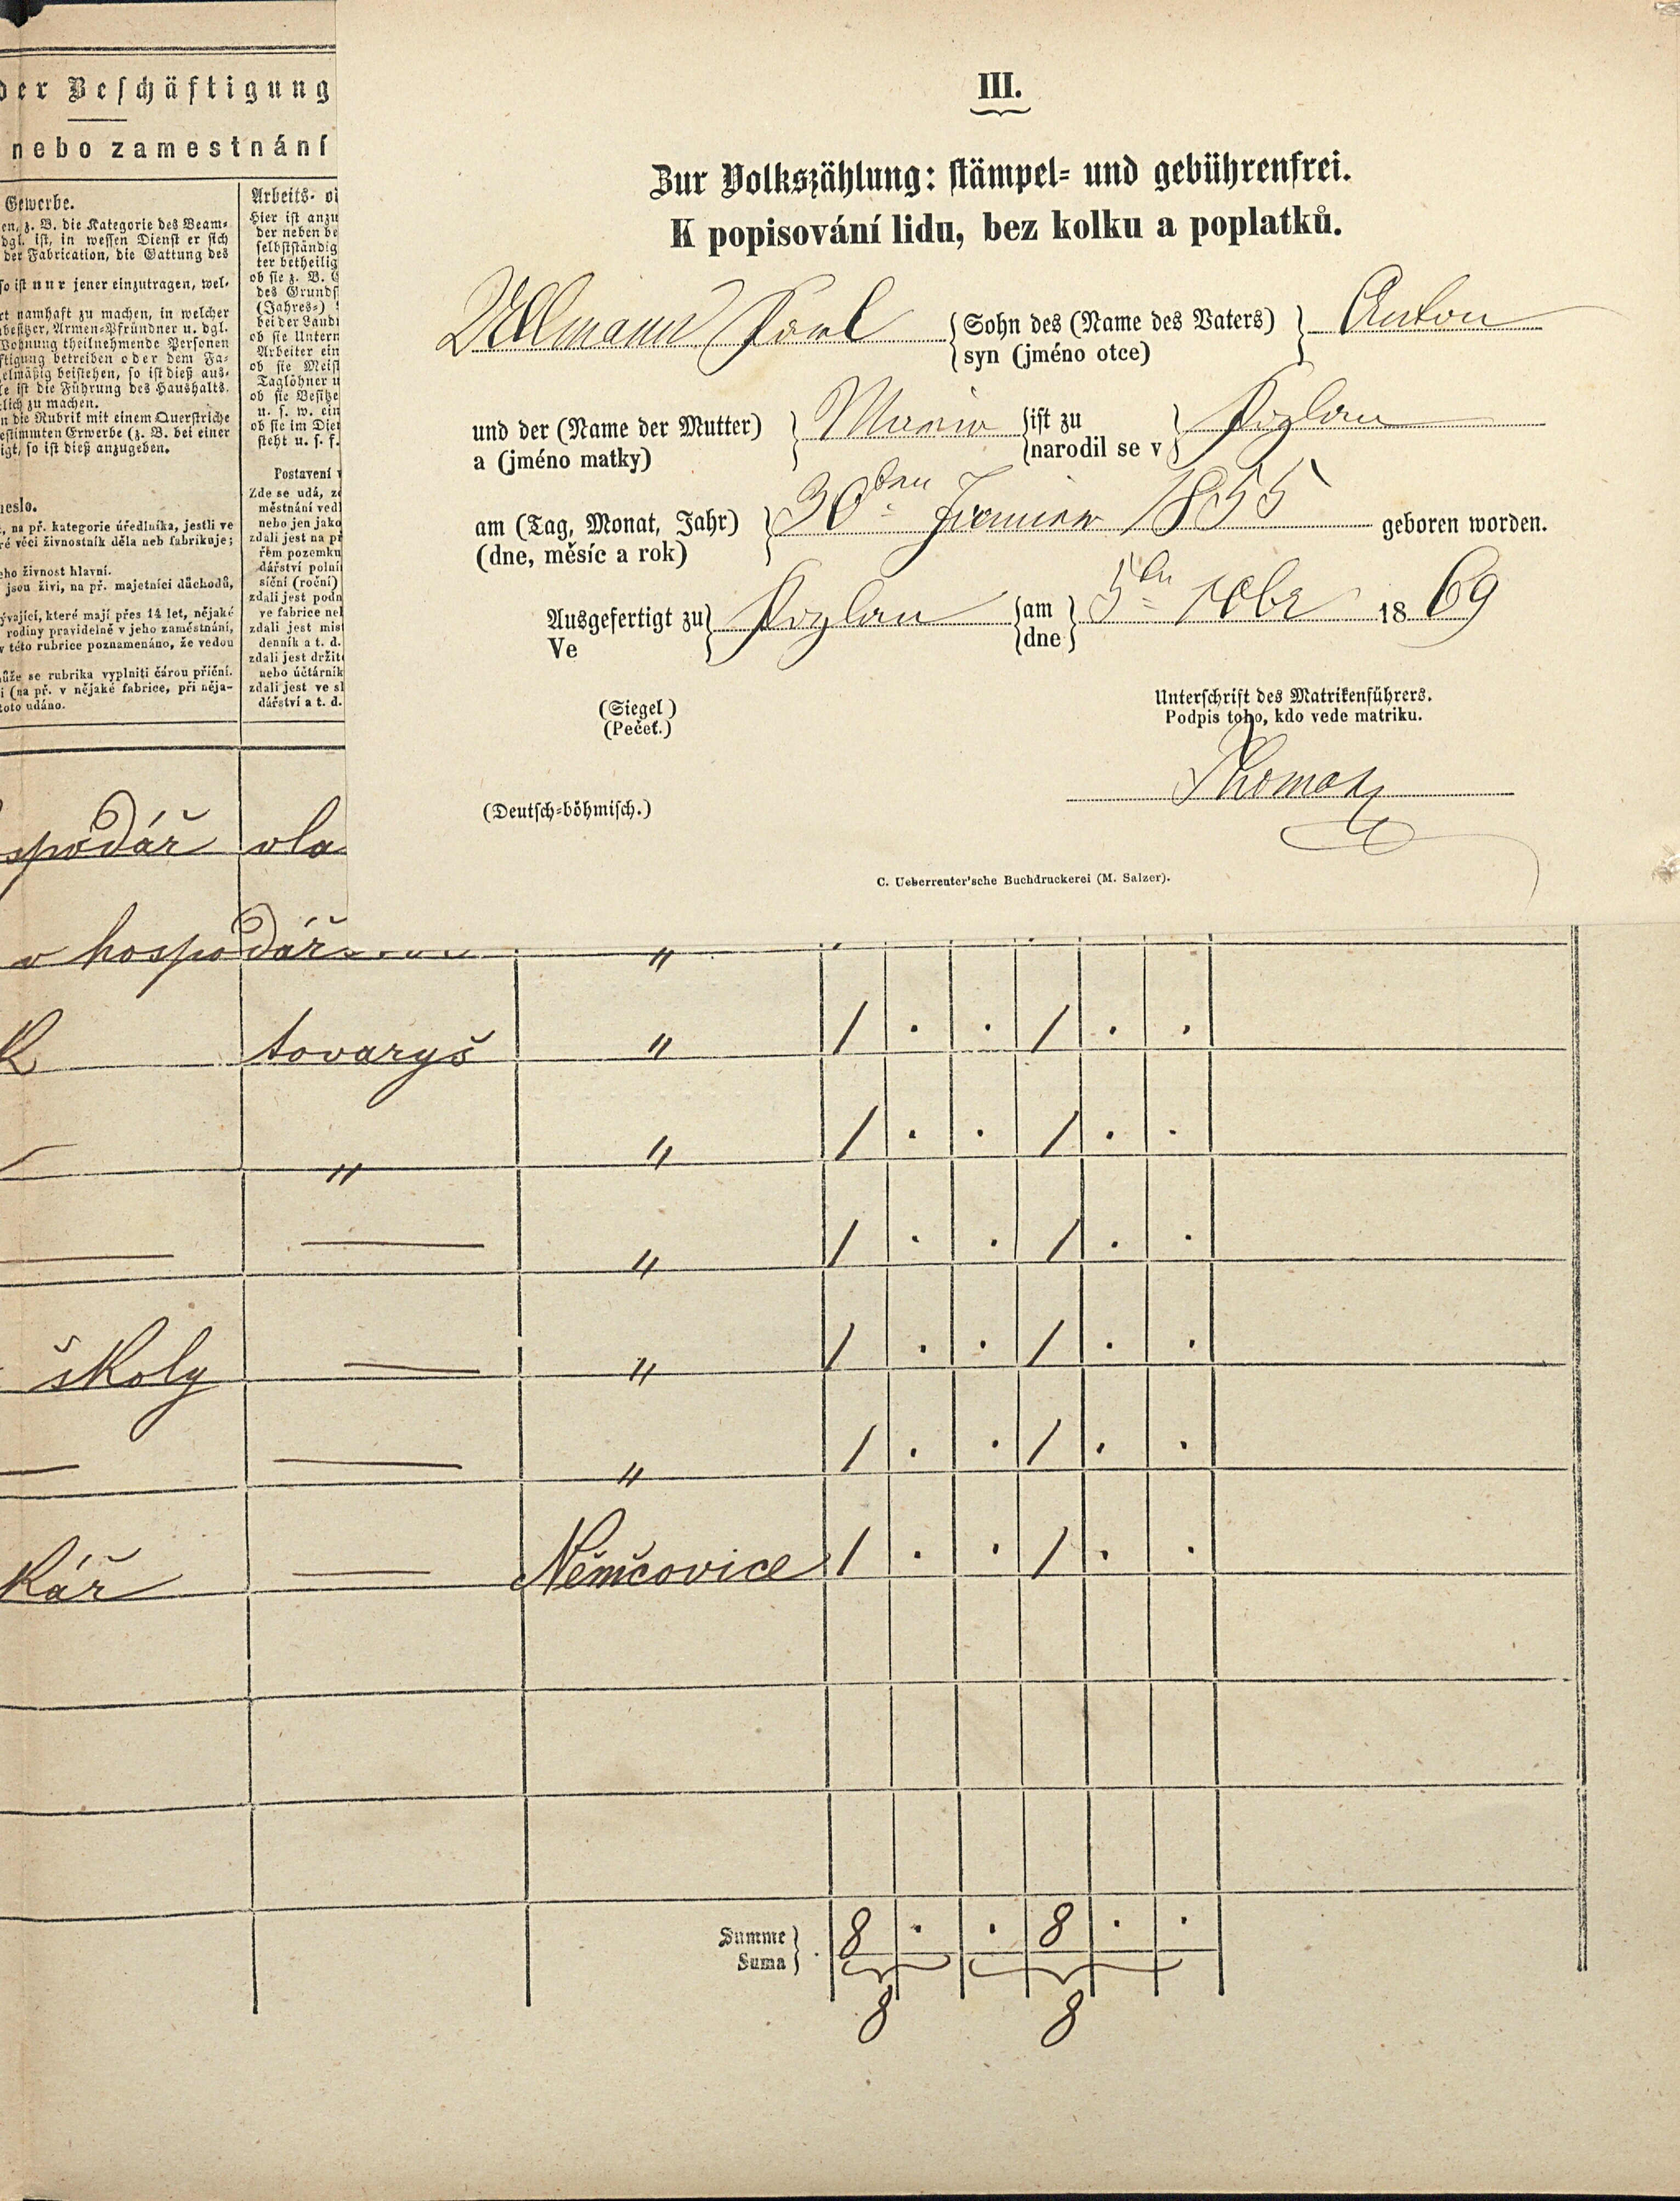 der Beschäftigung
nebo zamestnání
Gewerbe.
en, z. B. die Kategorie des Beam-
dgl. ist, in wessen Dienst er sich
der Fabrication, die Gattung des
so ist nur jener einzutragen, wel-
rt namhaft zu machen, in welcher
besitzer, Armen-Pfründner u. dgl.
Wohnung theilnehmende Personen
ftigung betreiben oder dem Fa-
elmäßig beistehen, so ist dieß aus-
le ist die Führung des Haushalts.
lich zu machen.
n die Rubrik mit einem Querstriche
estimmten Erwerbe (z. B. bei einer
igt, so ist dieß anzugeben.
neslo.
, na př. kategorie úředlníka, jestli ve
ré věci živnostník děla neb fabrikuje;
eho živnost hlavní.
jsou živi, na př. majetníci důchodů,
ývající, které mají přes 14 let, nějaké
rodiny pravidelně v jeho zaměstnání,
v této rubrice poznamenáno, že vedou
ůže se rubrika vyplniti čárou příční.
i (na př. v nějaké fabrice, při něja-
toto udáno.
Arbeits- o
Hier ist anzu
der neben be
selbstständig
ter betheilig
ob sie z. B.
des Grunds
(Jahres-)
bei der Land
ob sie Untern
Arbeiter ein
ob sie Meist
Taglöhner u
ob sie Besitze
u. s. w. ein
ob sie im Die
steht u. s. f.
Postavení v
Zde se udá, z
městnání ved
nebo jen jako
zdali jest na p
řém pozemku
dářství polní
síční (roční)
zdali jest podn
ve fabrice ne
zdali jest mis
denník a t. d.
zdali jest držit
nebo účtárník
zdali jest ve s
dářství a t. d.
III.
Zur Volkszählung: stämpel- und gebührenfrei.
K popisování lidu, bez kolku a poplatků.
Ullmann Karl Sohn des (Name des Vaters) Anton
syn (jméno otce)
und der (Name der Mutter) Maria ist zu
a (jméno matky) narodil se v
am (Tag, Monat, Jahr) 30ten 1855 geboren worden.
(dne, měsíc a rok)
Ausgefertigt zu am 5ten 1869
Ve dne
(Siegel)
(Pečeť.)
Unterschrift des Matrikenführers.
Podpis toho, kdo vede matriku.
(Deutsch-böhmisch.)
C. Ueberreuter'sche Buchdruckerei (M. Salzer).
spodář vla
v hospodář "
k tovaryš " / . . / . .
" " / . . / . .
— — " / . . / . .
školy — " / . . / . .
— — " / . . / . .
kář — Němčovice / . . / . .
Summe 8 . . 8 . .
Suma
8 8